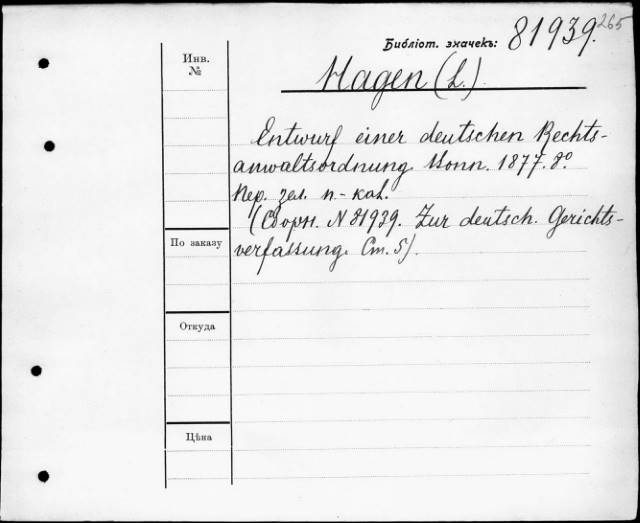 265
Библіот. значекъ: 81939.
Инв. №
Hagen (L.)
Entwurf einer deutschen Rechts-
anwaltsordnung. Bonn. 1877. 8°.
Пер. зел. п-каl.
(Сборн. N 81939. Zur deutsch. Gerichts-
verfassung. Ст. 5).
По заказу
Откуда
Цѣна